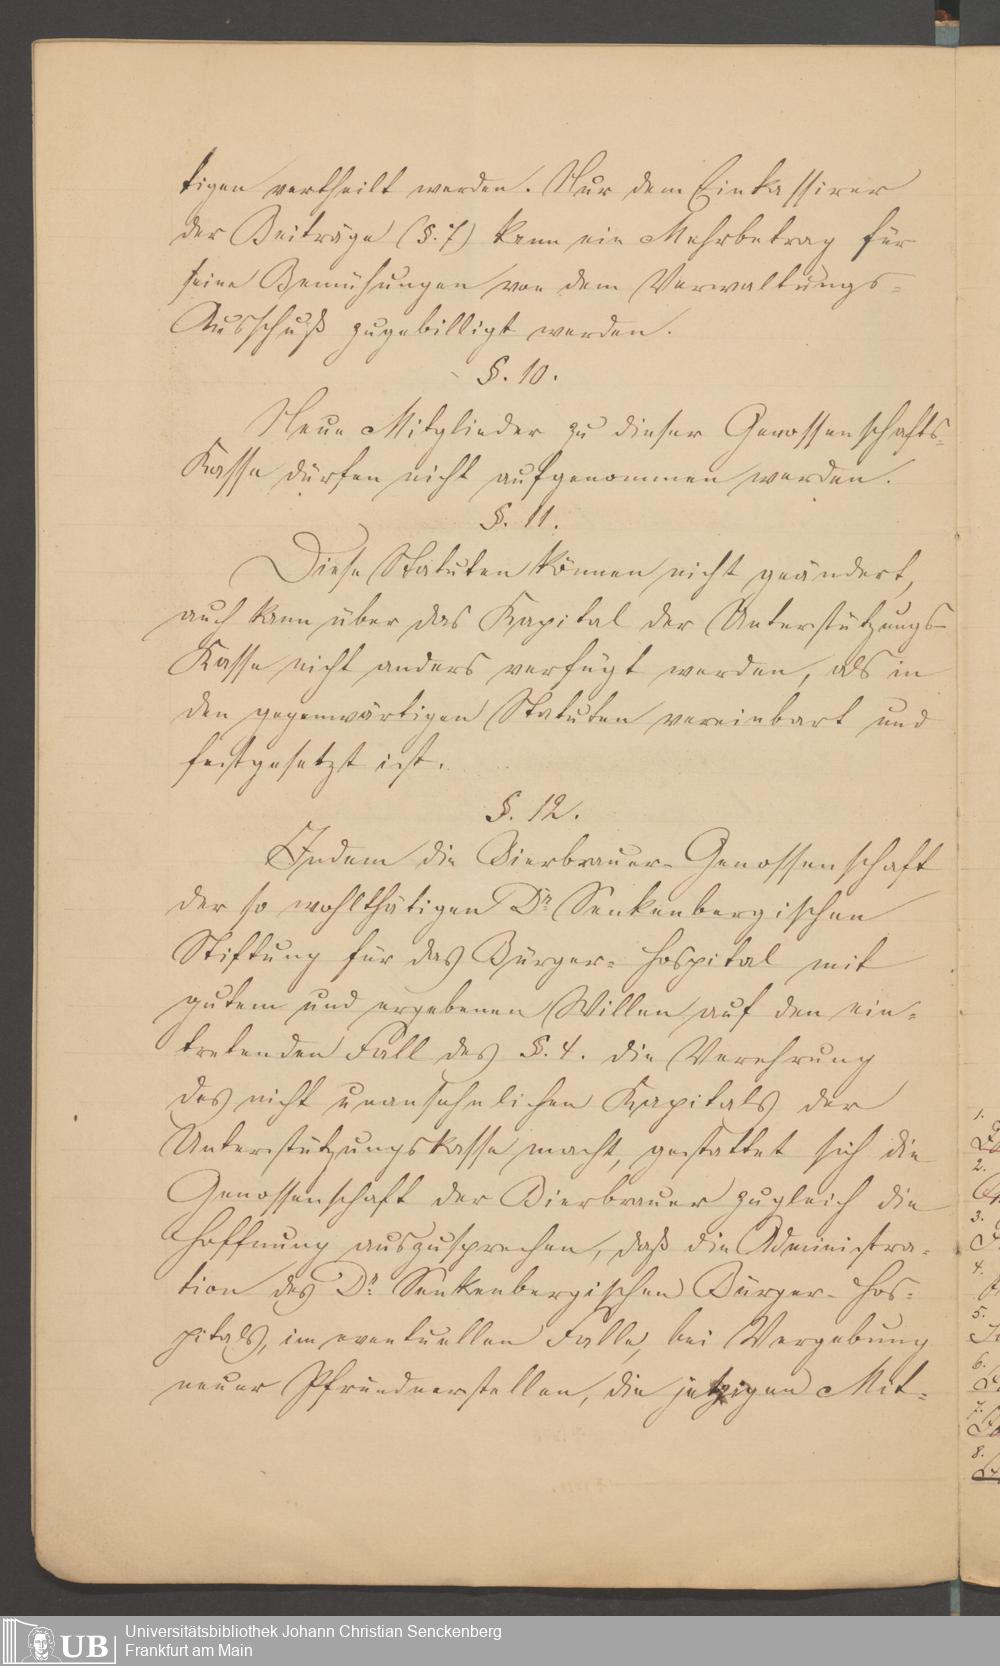 tigen vertheilt werden. Nur dem Einkassirer
der Beiträge (§. 7) kann ein Mehrbetrag für
seine Bemühungen von dem Verwaltungs-
Ausschuß zugebilligt werden.
§. 10.
Neue Mitglieder zu dieser Genossenschafts-
Kasse dürfen nicht aufgenommen werden.
§. 11.
Diese Statuten können nicht geändert,
auch kann über das Kapital der Unterstützungs-
Kasse nicht anders verfügt werden, als in
den gegenwärtigen Statuten vereinbart und
festgesetzt ist.
§. 12.
Indem die Bierbrauer-Genossenschaft
der so wohlthätigen Dr. Senkenbergischen
Stiftung für das Bürger-Hospital mit
gutem und ergebenen Willen auf den ein-
tretenden Fall des §. 4. die Verehrung
des nicht unansehnlichen Kapitals der
Unterstützungskasse macht, gestattet sich die
Genossenschaft der Bierbrauer zugleich die
Hoffnung auszusprechen, daß die Administra-
tion des Dr. Senkenbergischen Bürger-Hos-
pitals, im eventuellen Falle, bei Vergebung
neuer Pfründnerstellen, die jetzigen Mit-
1.
2.
3.
4.
5.
6.
7.
8.
UB
Universitätsbibliothek Johann Christian Senckenberg
Frankfurt am Main